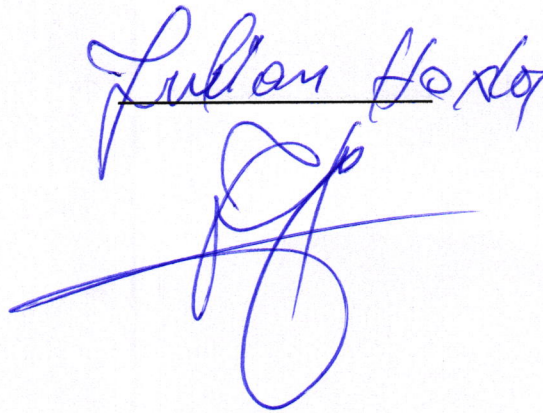 Julian Hoxha